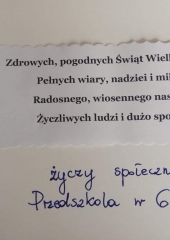 Zdrowych, pogodnych Świąt Wiel
Pełnych wiary, nadziei i mił
Radosnego, wiosennego nas
Życzliwych ludzi i dużo spo
życzy społeczn
Przedszkola nr 6